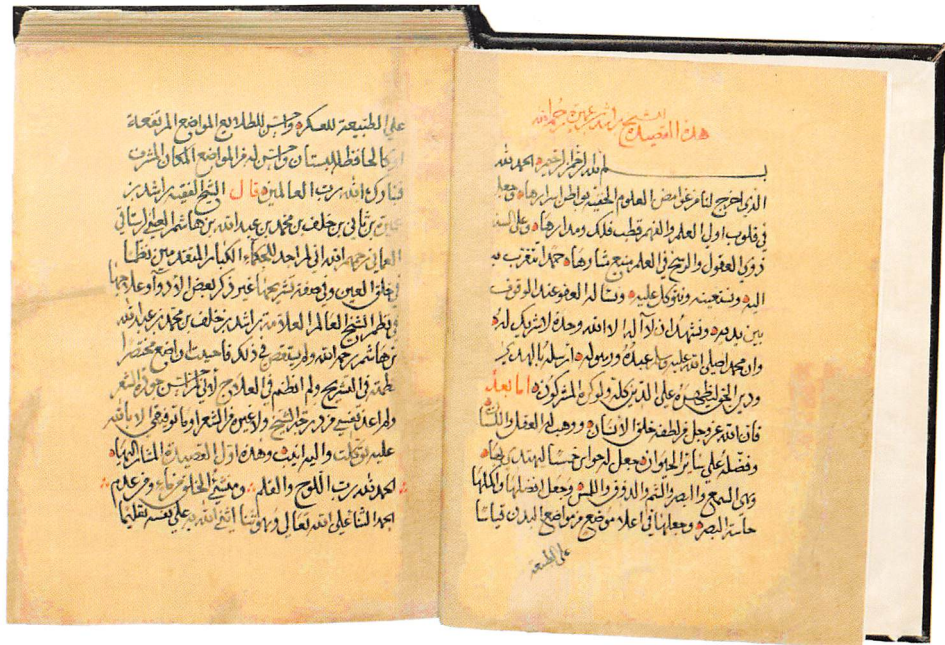 هذه القصيدة للشيخ راشد بن عميرة رحمه الله
بسم الله الرحمن الرحيم الحمد لله
الذي اخرج لنا من غوامض العلوم الخفية بواطن اسرارها وجعل
في قلوب اولي العلم والفهم قطب فلك ومدارها وعلى السنة
ذوي العقول والرسخ في العلم ينبع حمدا نتقرب به
اليه ونستعينه ونتوكل عليه ونساله العفو عند الوقوف
بين يديه ونشهد ان لا اله الا الله وحده لا شريك له
وان محمد صلى الله عليه وسلم عبده ورسوله ارسله بالهدى
ودين الحق ليظهره على الدين كله ولو كره المشركون اما بعد
فان الله عز وجل من لطفه خلق الانسان ووهب له العقل واللسان
وفضله على سائر الحيوان جعل له حواس خمسا ليهتدي بها
وهي السمع والبصر والشم والذوق واللمس وجعل افضلها واكملها
حاسة البصر وجعلها في اعلا موضع من مواضع البدن قياسا
على الطبيعة
على الطبيعة للعسكر وحواس للطلايع المواضع المرتفعة
او كالحافظ للبستان وحواس له من المواضع المكان المشرف
فتبارك الله رب العالمين قال الشيخ الفقيه راشد بن
عميرة بن ثاني بن خلف بن محمد بن عبد الله بن هاشم العيني الرستاقي
العماني رحمه الله اني لم اجد للحكماء الكبار المتقدمين نظما
في خلق العين وفي صفة تشريحها غير ذكر بعض الادواء وعلاجها
في نظم الشيخ العالم العلامة راشد بن خلف بن محمد بن عبد الله
بن هاشم رحمه الله ولم في ذلك فاحببت واضع مختصرا
نظمته في التشريح ولم انظم في العلاج
ولم اعد نفسي من درجة الشيخ ولا غيره في الشعر وما توفيقي الا بالله
عليه توكلت واليه انيب وهذه اول القصيدة المشار اليها
الحمد لله رب اللوح والقلم ومنشئ الخلق من ماء ومن عدم
الحمد الثنا على الله تعالى وهو ثنا اثنى الله به على نفسه تعليما